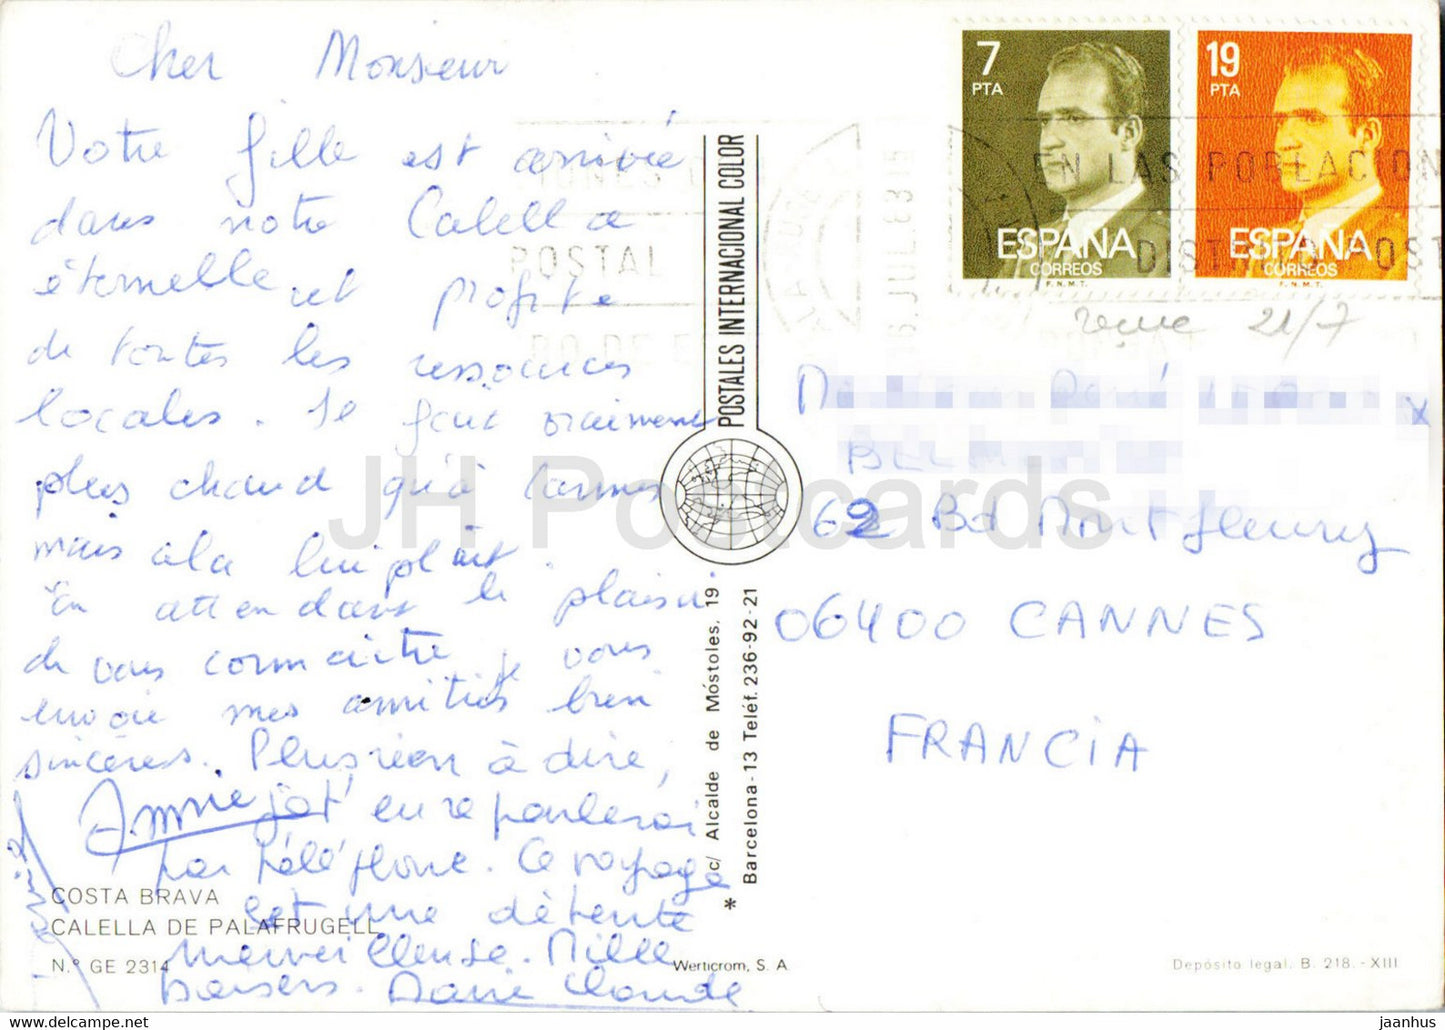 Cher Monsieur
Votre fille est arrivée
dans notre Calella
éternelle et profite
de toutes les ressources
locales. Il fait vraiment
plus chaud qu'à Cannes
mais cela lui plaît.
En attendant le plaisir
de vous connaître, je vous
envoie mes amitiés bien
sincères. Plus rien à dire,
Annie
j't' en reparlerai
par téléphone. Ce voyage
est une détente
merveilleuse. Mille
baisers. Marie Claude
COSTA BRAVA
CALELLA DE PALAFRUGELL
N.º GE 2314
POSTALES INTERNACIONAL COLOR
c/ Alcalde de Móstoles, 19
Barcelona-13 Teléf. 236-92-21
*
Werticrom, S. A
Depósito legal. B. 218.-XIII
7
PTA
ESPAÑA
CORREOS
F.N.M.T.
19
PTA
ESPAÑA
CORREOS
F.N.M.T.
EN LAS POBLACION
POSTAL
JUL. 83
reçue 21/7
62 Bd Montfleury
06400 CANNES
FRANCIA
JH Postcards
https://jh-postcards.com
jaanhus